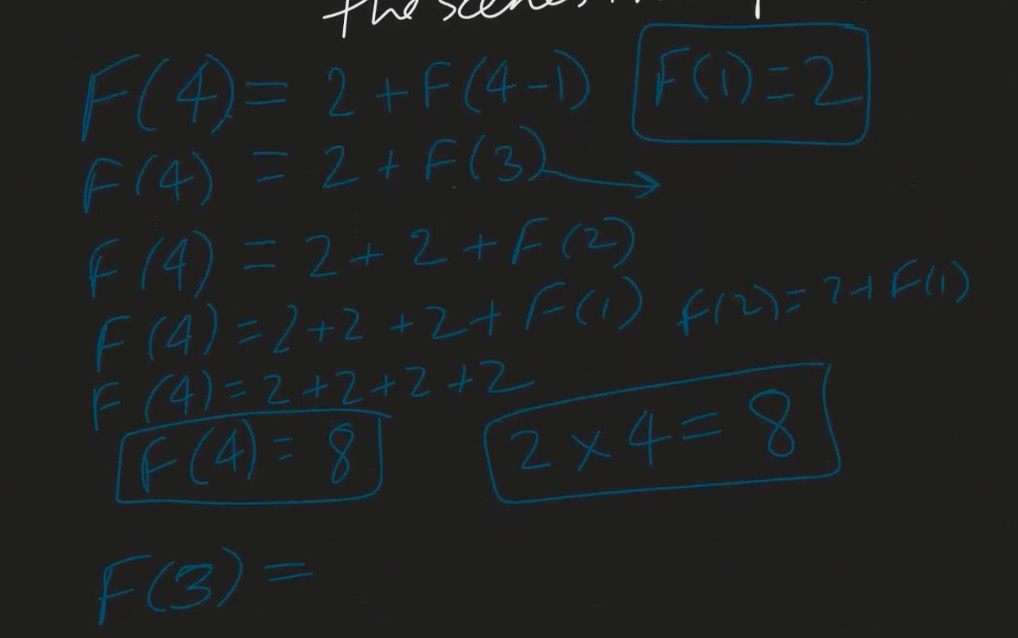 the scenes
F(4) = 2 + F(4-1)
F(1) = 2
F(4) = 2 + F(3)
F(4) = 2 + 2 + F(2)
F(4) = 2+2 +2+ F(1)
F(2) = 2+ F(1)
F(4) = 2+2+2+2
F(4) = 8
2 × 4 = 8
F(3) =